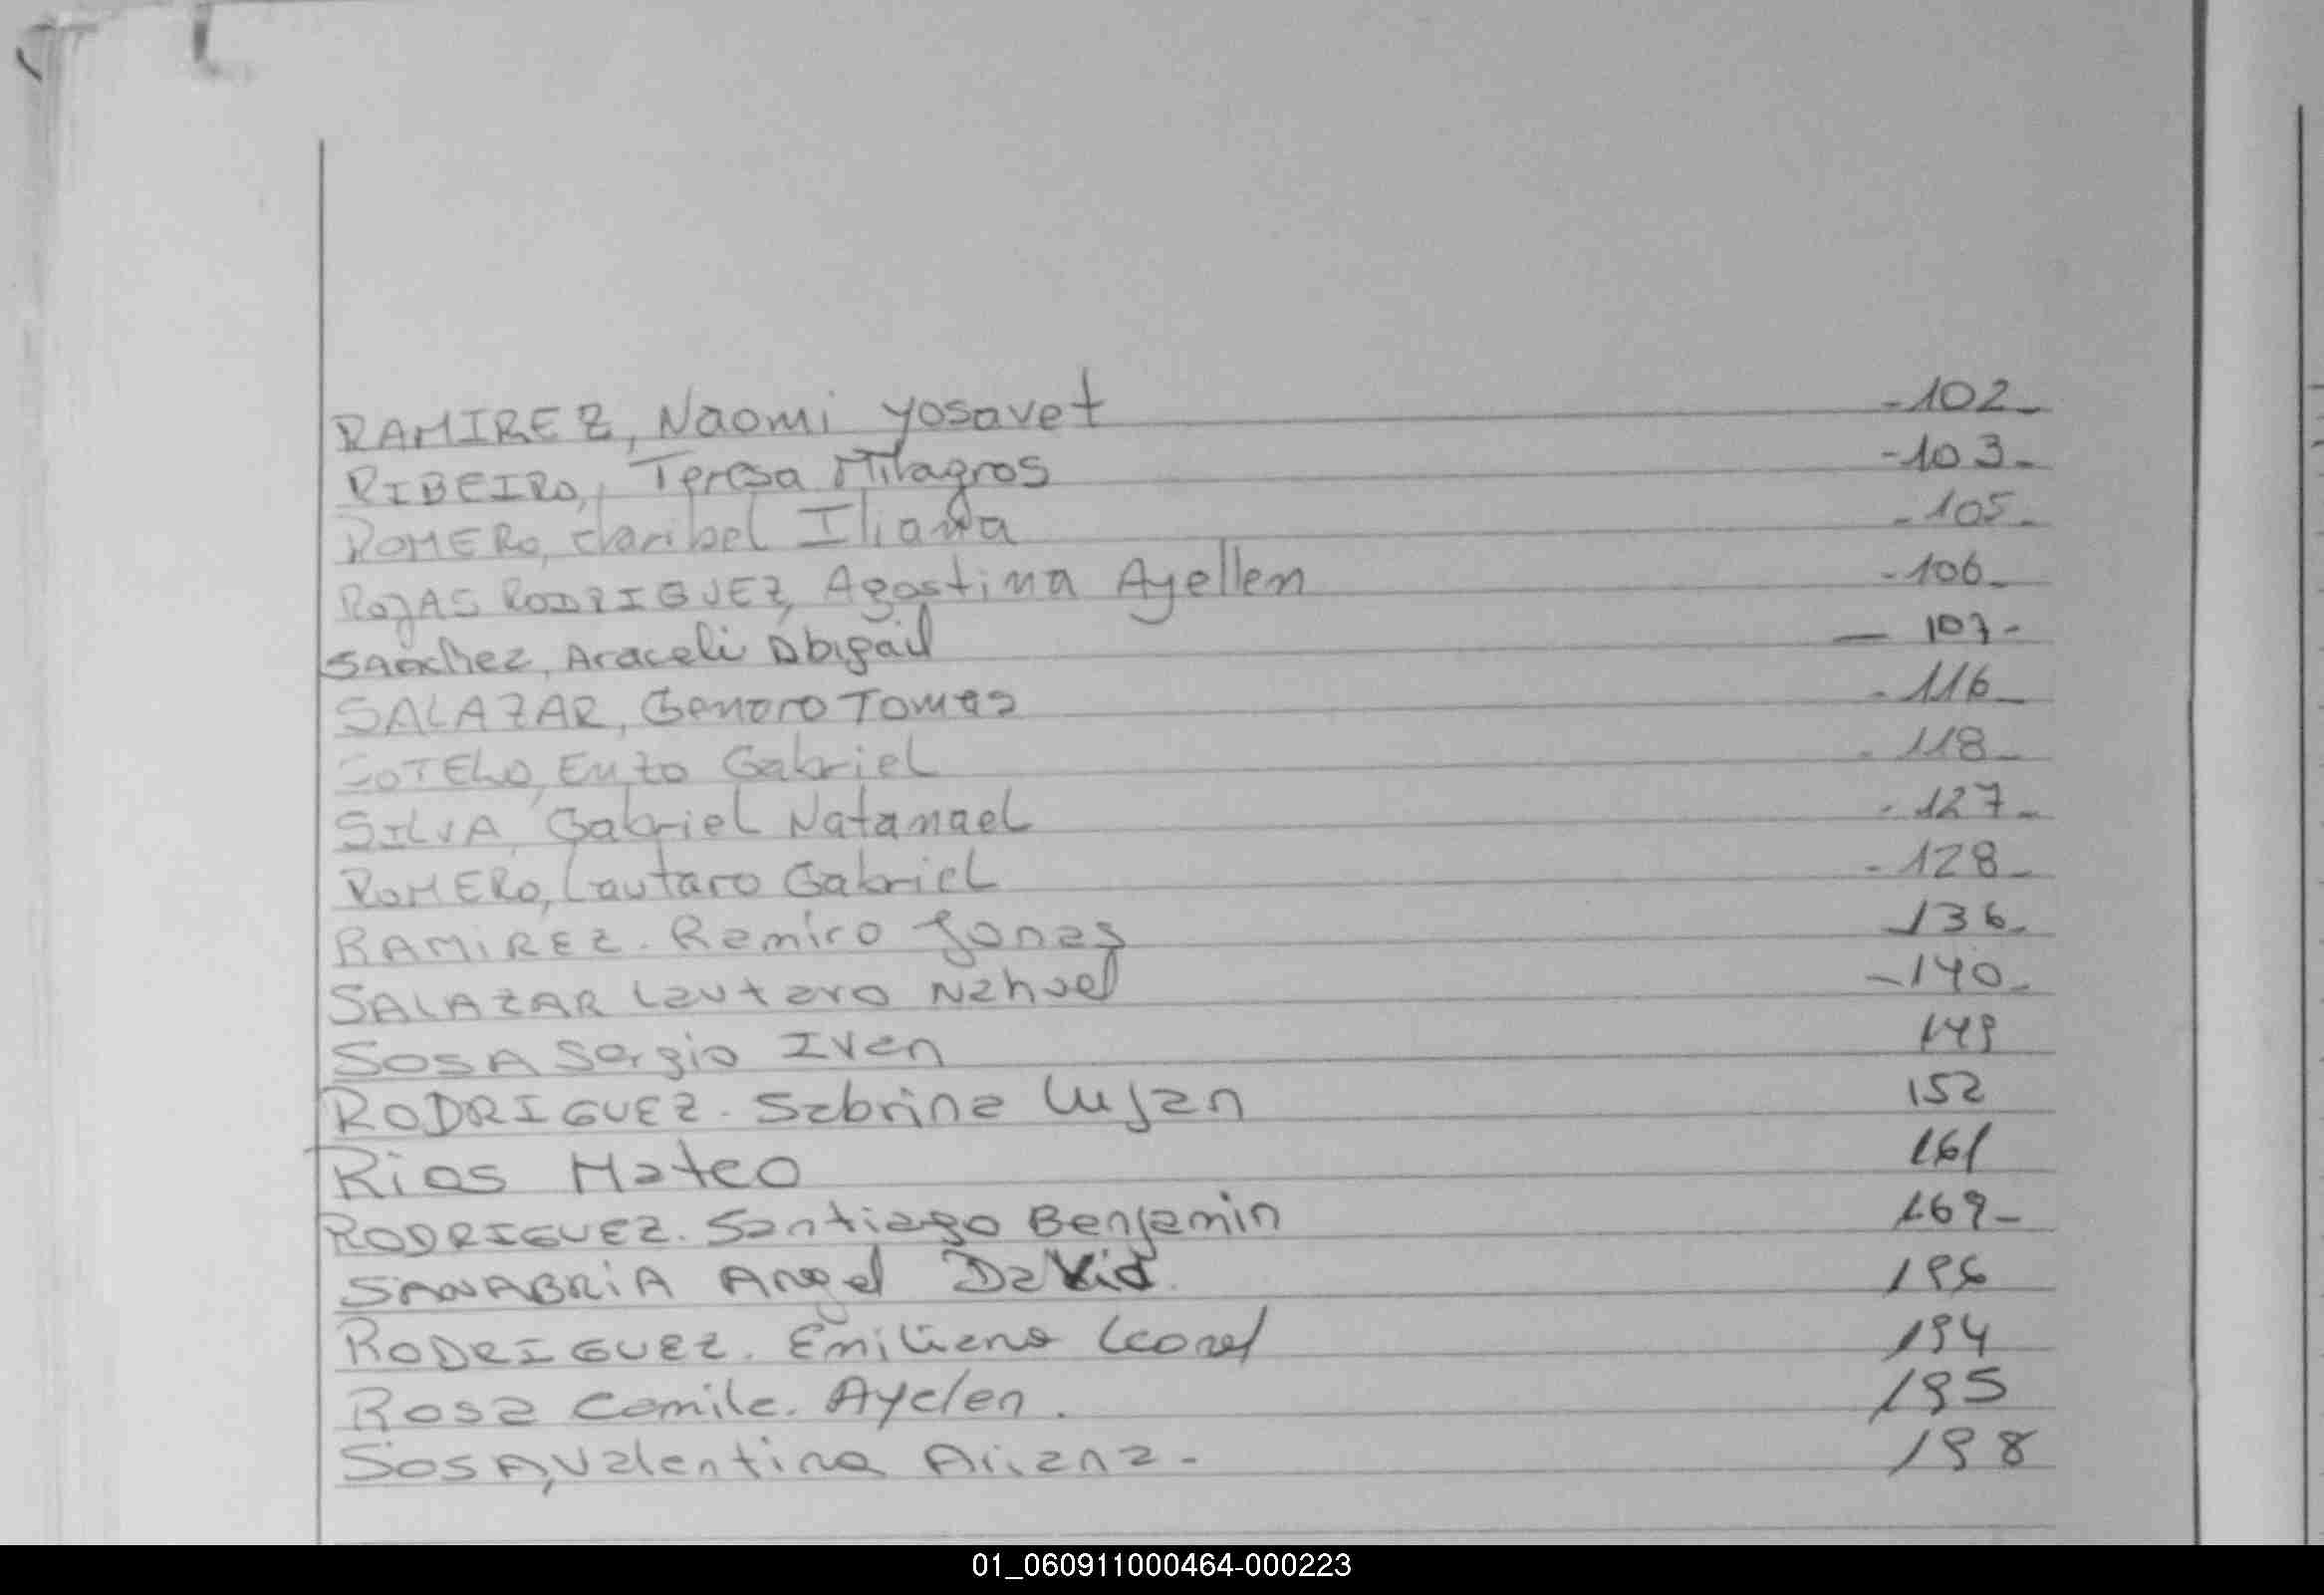 RAMIREZ, Naomi Yosavet -102-
RIBEIRO, Teresa Milagros -103-
ROMERO, Claribel Iliana -105-
ROJAS RODRIGUEZ, Agostina Ayellen -106-
Sanchez, Araceli Abigail — 107-
SALAZAR, Genaro Tomas -116-
SOTELO, Enzo Gabriel -118-
SILVA, Gabriel Natanael -127-
ROMERO, Lautaro Gabriel -128-
RAMIREZ. Ramiro Jonas 136-
SALAZAR Lautaro Nahuel -140-
SOSA Sergio Ivan 149
RODRIGUEZ. Sabrina Lujan 152
Rios Mateo 161
RODRIGUEZ. Santiago Benjamin 169-
SANABRIA Angel David.
RODRIGUEZ. Emiliano Leonel 194
Rosa Camila. Ayelen. 195
SOSA, Valentina Ariana- 198
01_060911000464-000223